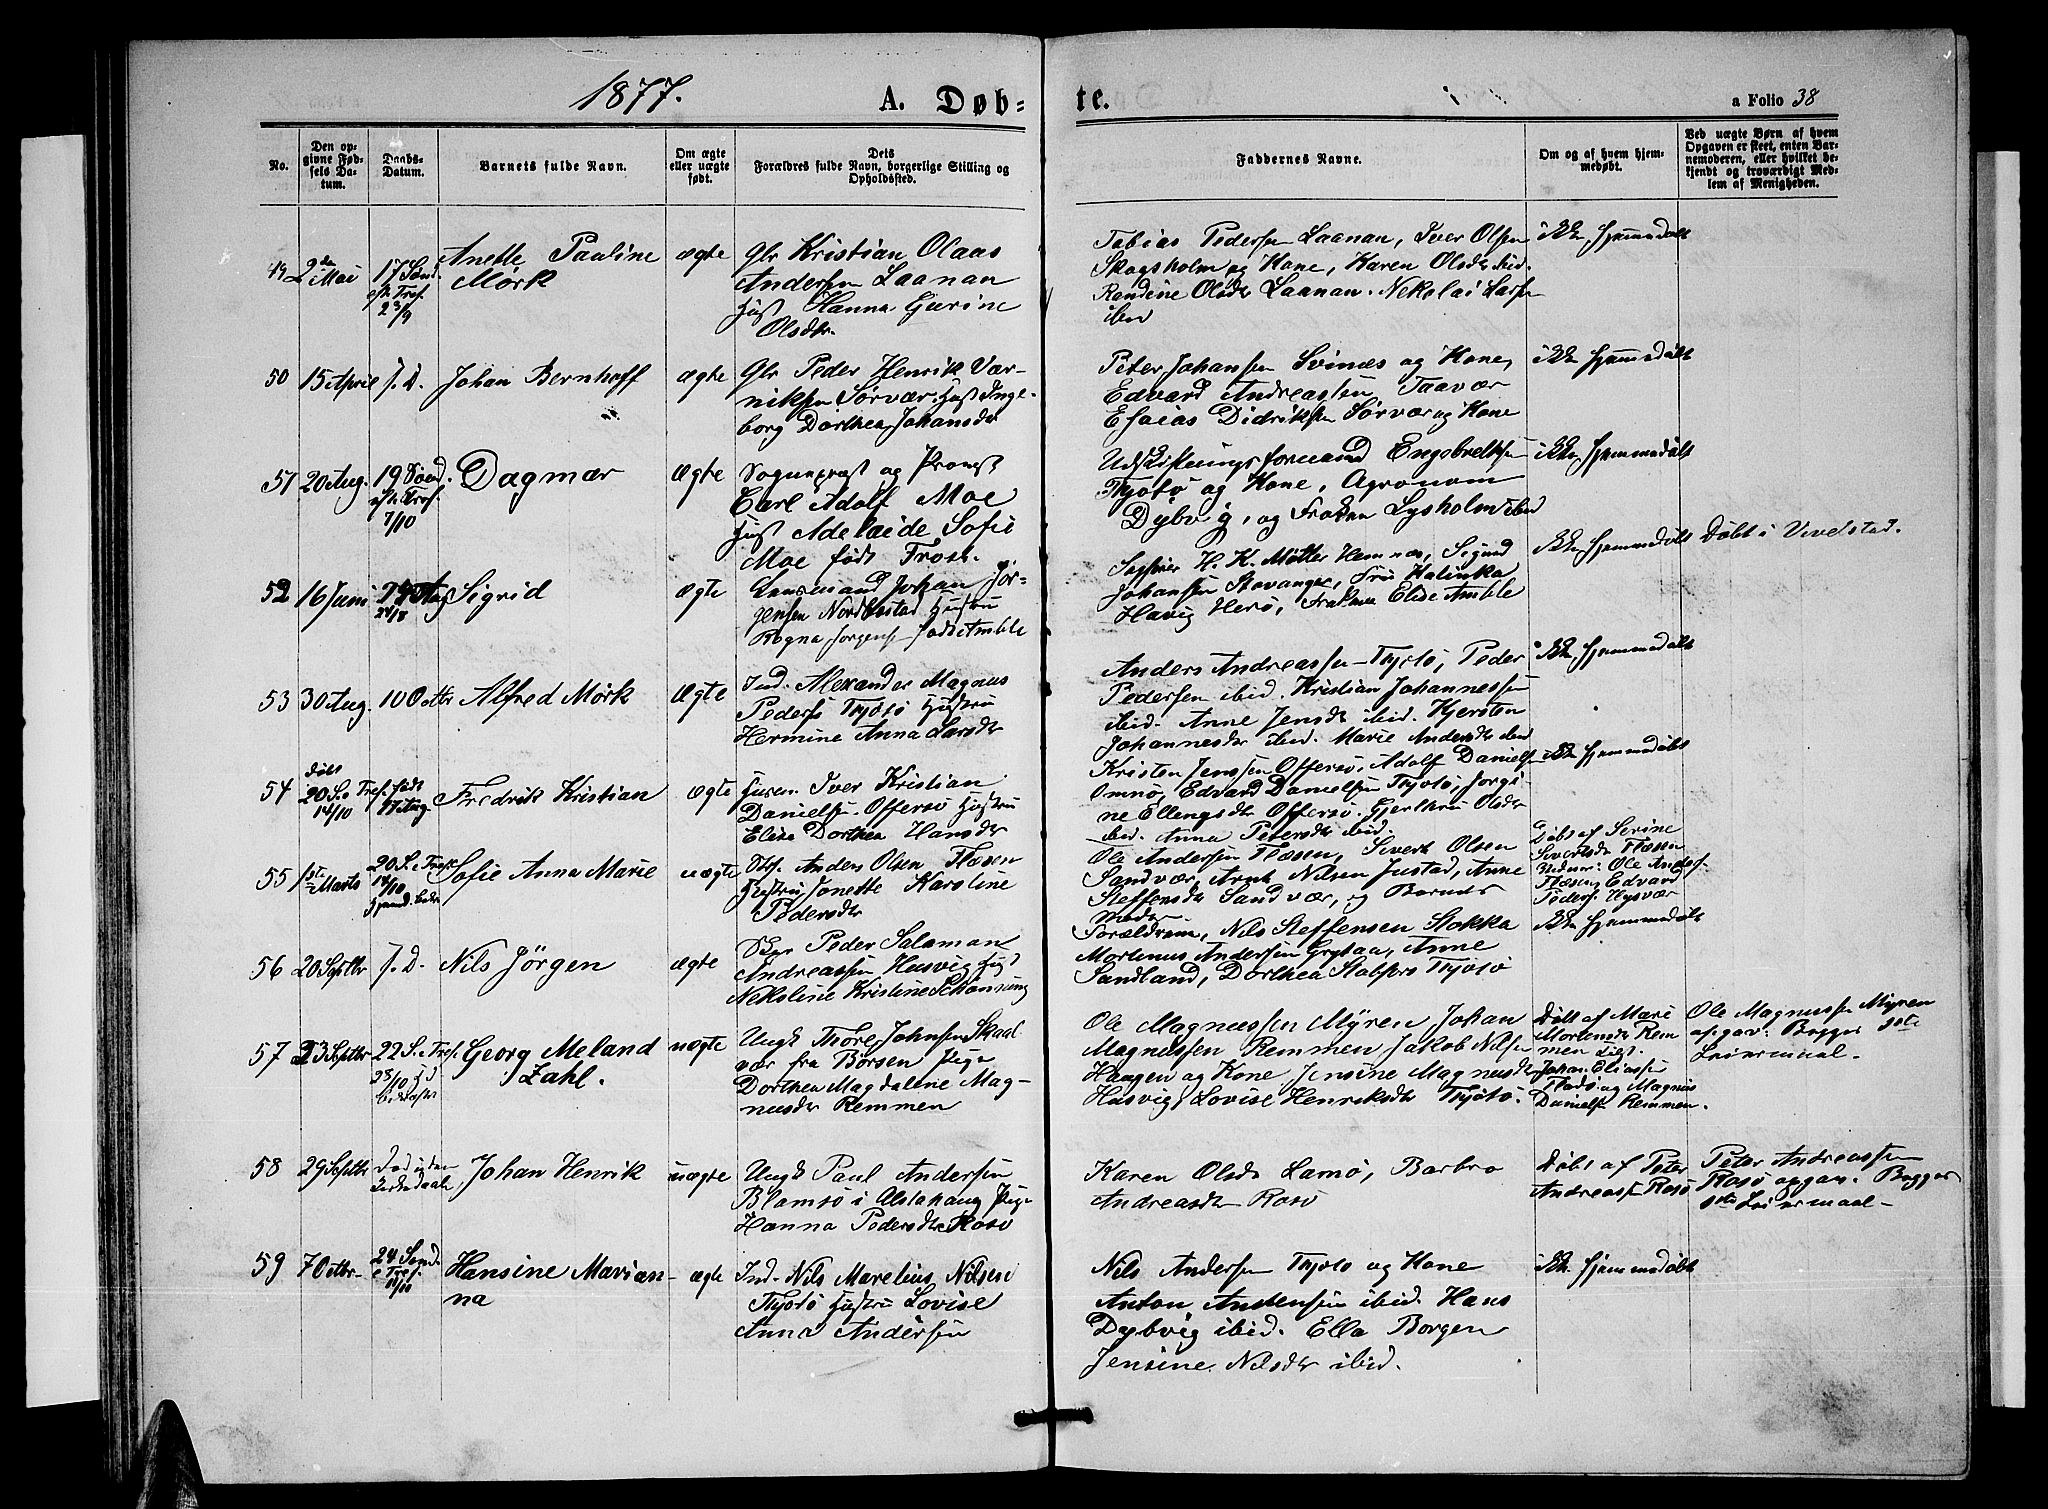 1877.
A. Døb-
te.
a Folio 38
No.
Den op-
givne Fød-
sels Da-
tum.
Daabs-
Datum.
Barnets fulde Navn.
Om ægte
eller uægte
født.
Dets
Forældres fulde Navn, borgerlige Stilling og
Opholdssted.
Faddernes Navne.
Om og af hvem hjem-
medøbt.
Ved uægte Børn af hvem
Opgaven er skeet, enten Bar-
nemoderen, eller hvilket be-
kjendt og troværdigt Med-
lem af Menigheden.
49
2den
Mai
17 Sønd.
eft. Tref.
23/9
Anette Pauline
Mørk
ægte
Gbr Kristian Olaas
Andersen Laanan
Hust Hanna Gurine
Olsdtr.
Tobias Pedersen Laanan, Iver Olsen
Skogsholm og Kone, Karen Olsdtr ibid.
Randine Olsdtr Laanan. Nekolai Larsen
ibid
ikke hjemmedøbt
50
15 April
S. D.
Johan Bernhoff
ægte
Gbr Peder Henrik Vær-
niksen Sørvær. Hust Inge-
borg Dorthea Johansdtr
Peter Johansen Svinæs og Kone,
Edvard Andreassen Taavær
Esaias Didriksen Sørvær og Kone
ikke hjemmedøbt
51
20 Aug.
19 Sønd.
eft. Tref.
7/10
Dagmar
Ægte
Sogneprest og Provst
Carl Adolf Moe
Hust Adelaide Sofie
Moe født Frost.
Udskiftningsformand Engebretsen
Thjøtø og Kone, Agronom
Dybvig, og Frøken Lysholm ibid
ikke hjemmedøbt
52
16 Juni
24/8
Sigrid
ægte
Lensmand Johan Jør-
gensen Hustru
Ragna Jørgensen født Amble
H. K. Møtter Hemnæs, Sigurd
Johansen Stavanger, Fru Kalinka
Havig Herø, Frøken Elise Amble
ikke hjemmedøbt
Døbt i Vivelstad.
53
30 Aug.
10 Octbr
Alfred Mørk
Ægte
Ind. Alexander Magnus
Peders. Thjøtø Hustru
Hermine Anna Larsdtr
Anders Andreassen Thjøtø, Peder
Pedersen ibid. Kristian Johannessen
ibid. Anne Jensdtr ibid. Kjersten
Johannesdtr ibid. Marie Andersdtr ibid
ikke hjemmedøbt
54
døbt
20 S. e Tref.
14/10
født
Aug.
Fredrik Kristian
ægte
Husm. Iver Kristian
Danielsen Offersø Hustru
Elisa Dorthea Hansdtr
Kristen Jenssen Offersø, Adolf Danielsen
Omnø, Edvard Danielsen Thjøtø, Jørgi-
ne Ellingsdtr Offersø. Gjertrud Olsdtr
ibid. Anna Petersdtr ibid.
ikke hjemmedøbt
55
1ste
Marts
20 S. e. Tref.
14/10
Sofie Anna Marie
uægte
Anders Olsen Flæsen
Hustru Jonette Karoline
Pedersdtr
Ole Andersen Flæsen, Sivert Olsen
Sandvær, Arnt Nilsen Justad, Anne
Steffensdtr Sandvær, og Barnets
Moder
Døbt af Serine
Sivertsdtr Flæsen
Vidner: Ole Anders.
Flæsen, Edvard
Peders. Hysvær
56
20 Septbr
S. D.
Nils Jørgen
ægte
Peder Salamon
Andreassen Husvig Hust
Nekoline Kristine Schønning
Forældrene, Nils Steffensen Stokka
Mortenus Andersen Grytaa, Anne
Sandland, Dorthea Stabfors Thjøtø
ikke hjemmedøbt
57
23 Septbr
22 S. e Tref.
28/10
Georg Meland
Zahl.
uægte
Ungk Thore Johnsen Skaal-
vær fra Børsen Pige
Dorthea Magdalene Mag-
nusdtr Remmen
Ole Magnussen Myren Johan
Magnussen Remmen Jakob Nilsen
Haugen og Kone Jensine Magnusdtr
Husvig, Lovise Henriksdtr Thjøtø.
Døbt af Mari
Mortensdtr Rem-
men
Johan Eliassen
Fladø og Magnus
Daniels. Remmen.
Ole Magnussen Myren
opgav: Begges 1ste
Leiermaal.
58
29 Septbr
Død uden
Johan Henrik
uægte
Ungk Paul Andersen
Blomsø i Alstahaug Pige
Hanna Pedersdtr Rosø
Karen Olsdtr Lamø, Barbro
Andreasdtr Rosø
Døbt af Peter
Andreassen Rosø
Peter Andreassen
Rosø opgav: Begges
1ste Leiermaal
59
7 Octbr
24 Sønd.
e Tref.
Hansine Marian-
na
ægte
Ind. Nils Marelius Nilsen
Thjøtø Hustru Lovise
Anna Andersen
Nils Andersen Thjøtø og Kone
Anton Andersen ibid. Hans
Dybvig ibid. Ella Borgen
Jensine Nilsdtr ibid.
ikke hjemmedøbt